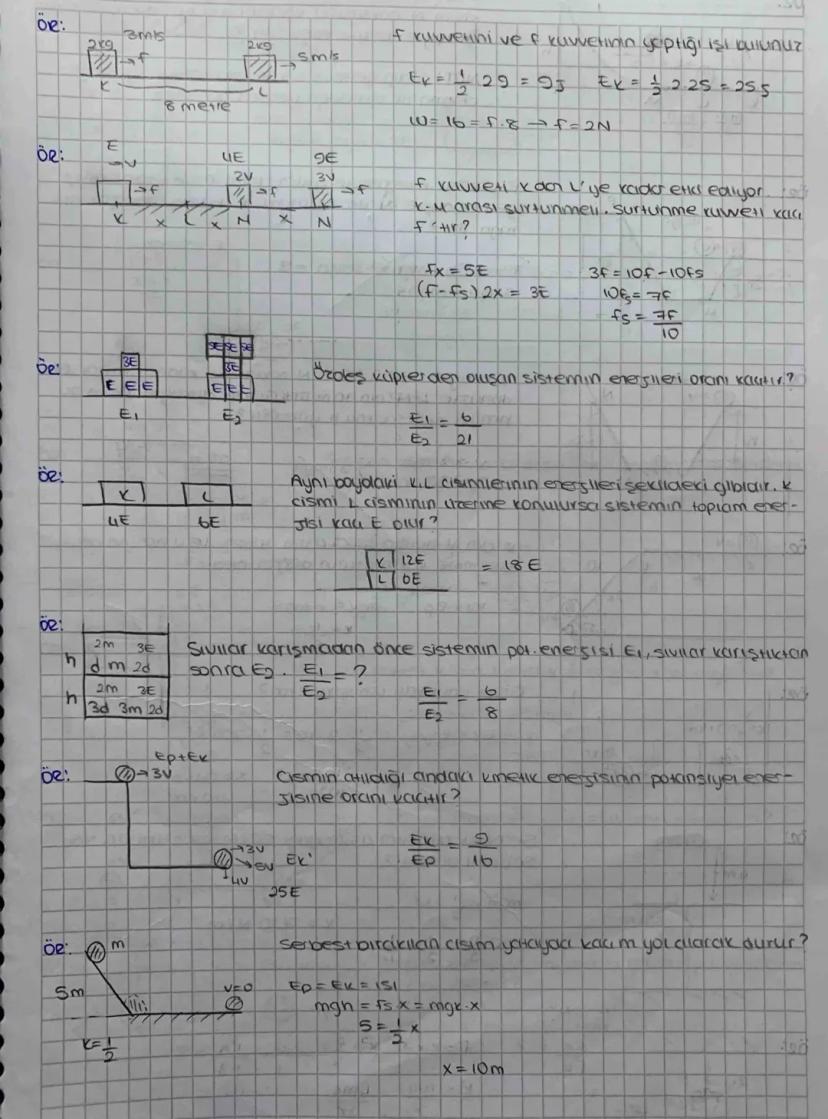 ÖR:
3m/s
2kg
→f
2kg
→5m/s
K
L
8 metre
f kuvvetini ve f kuvvetinin yaptığı işi bulunuz
Ek = 1/2 2 9 = 9J Ek = 1/2 2 25 = 25J
W = 16 = F.8 → f = 2N
ÖR:
E 4E 9E
→V 2V 3V
→f →f →f
K x L x N x N
f kuvveti K dan L'ye kadar etki ediyor.
K-M arası sürtünmeli. Sürtünme kuvveti kaç
f 'tir?
fx = 5E 3f = 10f - 10fs
(f-fs) 2x = 3E 10fs = 7f
fs = 7f/10
ÖR:
3E
E E E
E1
5E 5E 5E
3E
E E E
E2
Özdeş küplerden oluşan sistemin enerjileri oranı kaçtır?
E1/E2 = 6/21
ÖR:
K L
4E 6E
Aynı boydaki K,L cisimlerinin enerjileri şekildeki gibidir. K
cismi L cisminin üzerine konulursa sistemin toplam ener-
jisi kaç E olur?
K 12E
L 6E
= 18E
ÖR:
h 2m 3E
d m 2d
h 2m 3E
3d 3m 2d
Sıvılar karışmadan önce sistemin pot. enerjisi E1, sıvılar karıştıktan
sonra E2. E1/E2 = ?
E1/E2 = 6/8
ÖR:
Ep+Ek
→3V
→3V
5V Ek'
4V
25E
Cismin atıldığı andaki kinetik enerjisinin potansiyel ener-
jisine oranı kaçtır?
Ek/Ep = 9/16
ÖR:
m
5m
V=0
k=1/2
Serbest bırakılan cisim yatayda kaç m yol alarak durur?
Ep = Ek = ISI
mgh = fs x = mgk.x
5 = 1/2 x
x = 10m